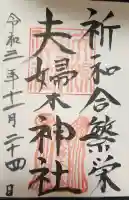 祈和合繁栄
夫婦木神社
令和三年十一月二十四日